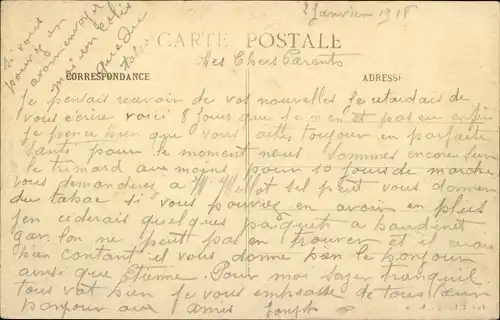 2 Janvier 1918
Si vous
pouvez en
avoir envoyé
moi en colis
que du
tabac
CARTE POSTALE
CORRESPONDANCE
ADRESSE
Mes Chers Parents
Je pensais recevoir de vos nouvelles je retardais de
vous écrire voici 8 jours que je n'en et pas eu enfin
je pence bien que vous aites toujour en parfaite
santé pour le moment nous sommes encore sur
le trimard aux moins pour 10 jours de marche
vous demanderez a M. s'il peut vous donner
du tabac si vous pouvez en avoir en plus
j'en ciderais quelques paquets a baudinet
car lon ne peut pas en trouver et il serai
bien contant il vous donne bien le bonjour
ainsi que Etienne. Pour moi soyez tranquil
tous vat bien je vous embrasse de tous Cœur
bonjour aux amis Joseph